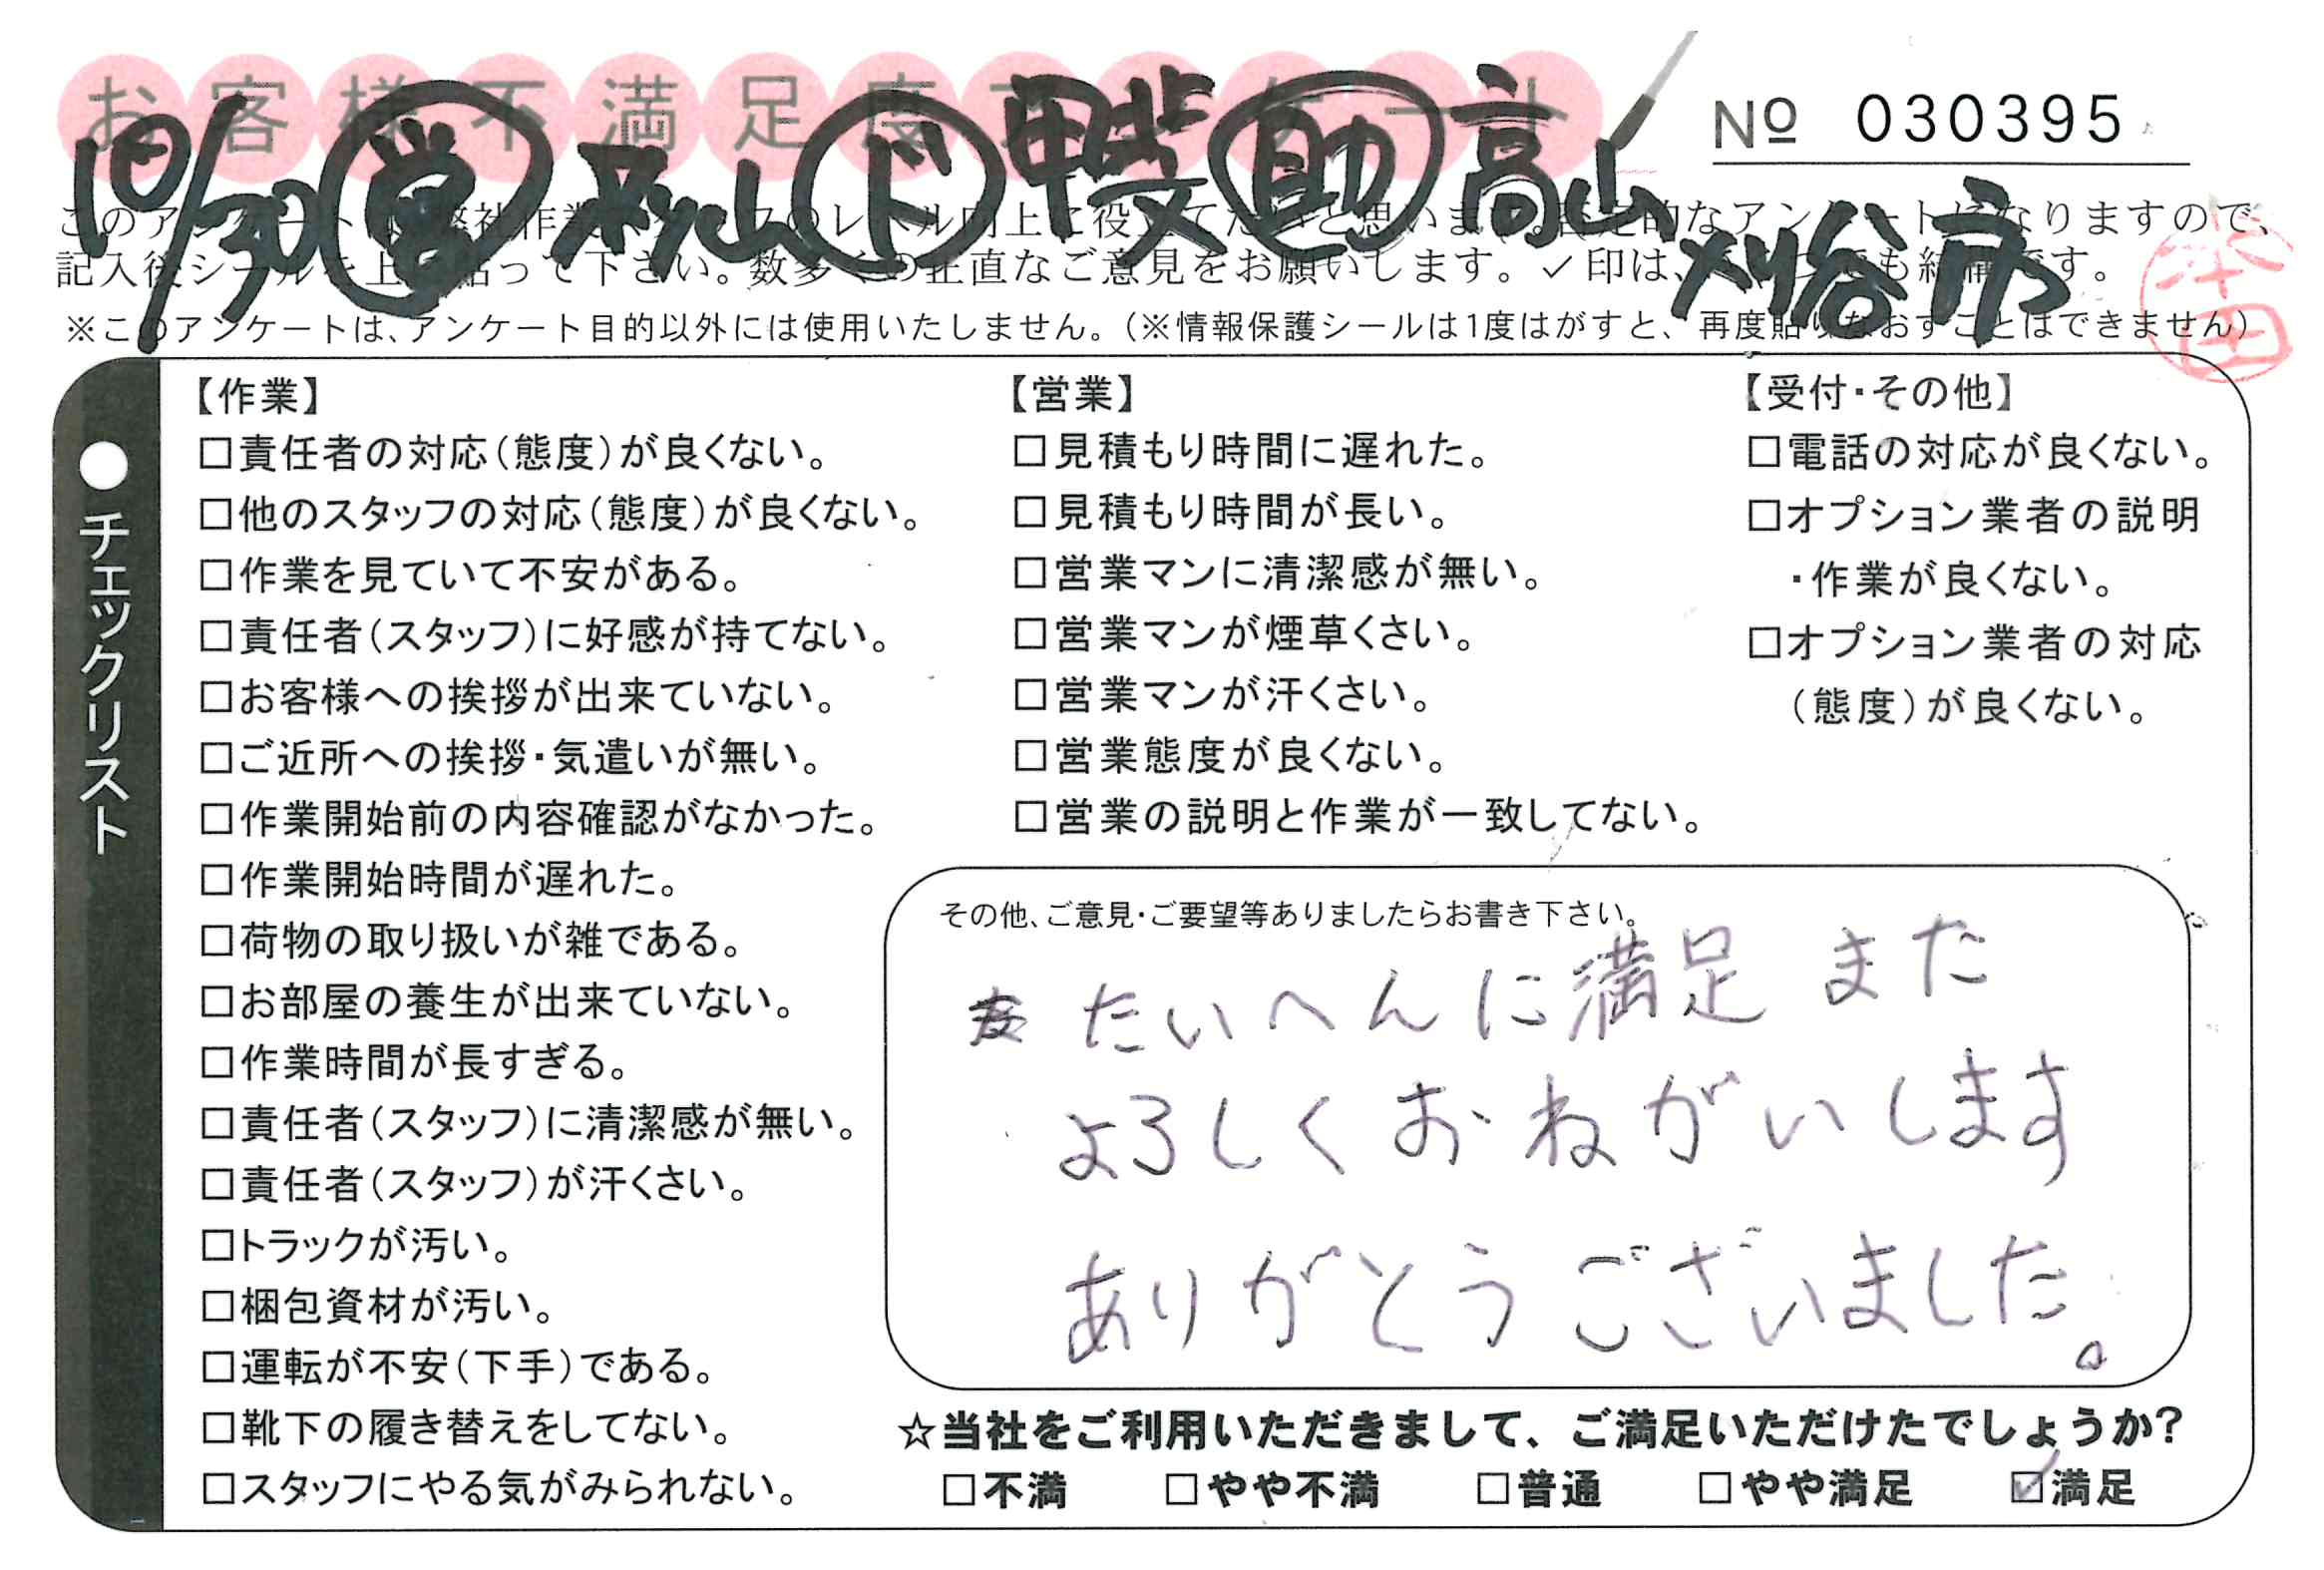 お客様不満足度アンケート
№ 030395
10/30 営 ド 甲斐 助 高山 刈谷市
記入後シールを上に貼って下さい。数多くの正直なご意見をお願いします。✓印は、いくつでも結構です。
※このアンケートは、アンケート目的以外には使用いたしません。(※情報保護シールは1度はがすと、再度貼りなおすことはできません)
●チェックリスト
【作業】
□責任者の対応(態度)が良くない。
□他のスタッフの対応(態度)が良くない。
□作業を見ていて不安がある。
□責任者(スタッフ)に好感が持てない。
□お客様への挨拶が出来ていない。
□ご近所への挨拶・気遣いが無い。
□作業開始前の内容確認がなかった。
□作業開始時間が遅れた。
□荷物の取り扱いが雑である。
□お部屋の養生が出来ていない。
□作業時間が長すぎる。
□責任者(スタッフ)に清潔感が無い。
□責任者(スタッフ)が汗くさい。
□トラックが汚い。
□梱包資材が汚い。
□運転が不安(下手)である。
□靴下の履き替えをしてない。
□スタッフにやる気がみられない。
【営業】
□見積もり時間に遅れた。
□見積もり時間が長い。
□営業マンに清潔感が無い。
□営業マンが煙草くさい。
□営業マンが汗くさい。
□営業態度が良くない。
□営業の説明と作業が一致してない。
【受付・その他】
□電話の対応が良くない。
□オプション業者の説明
・作業が良くない。
□オプション業者の対応
(態度)が良くない。
その他、ご意見・ご要望等ありましたらお書き下さい。
たいへんに満足 また
よろしくおねがいします
ありがとうございました。
☆当社をご利用いただきまして、ご満足いただけたでしょうか?
□不満 □やや不満 □普通 □やや満足 ☑満足